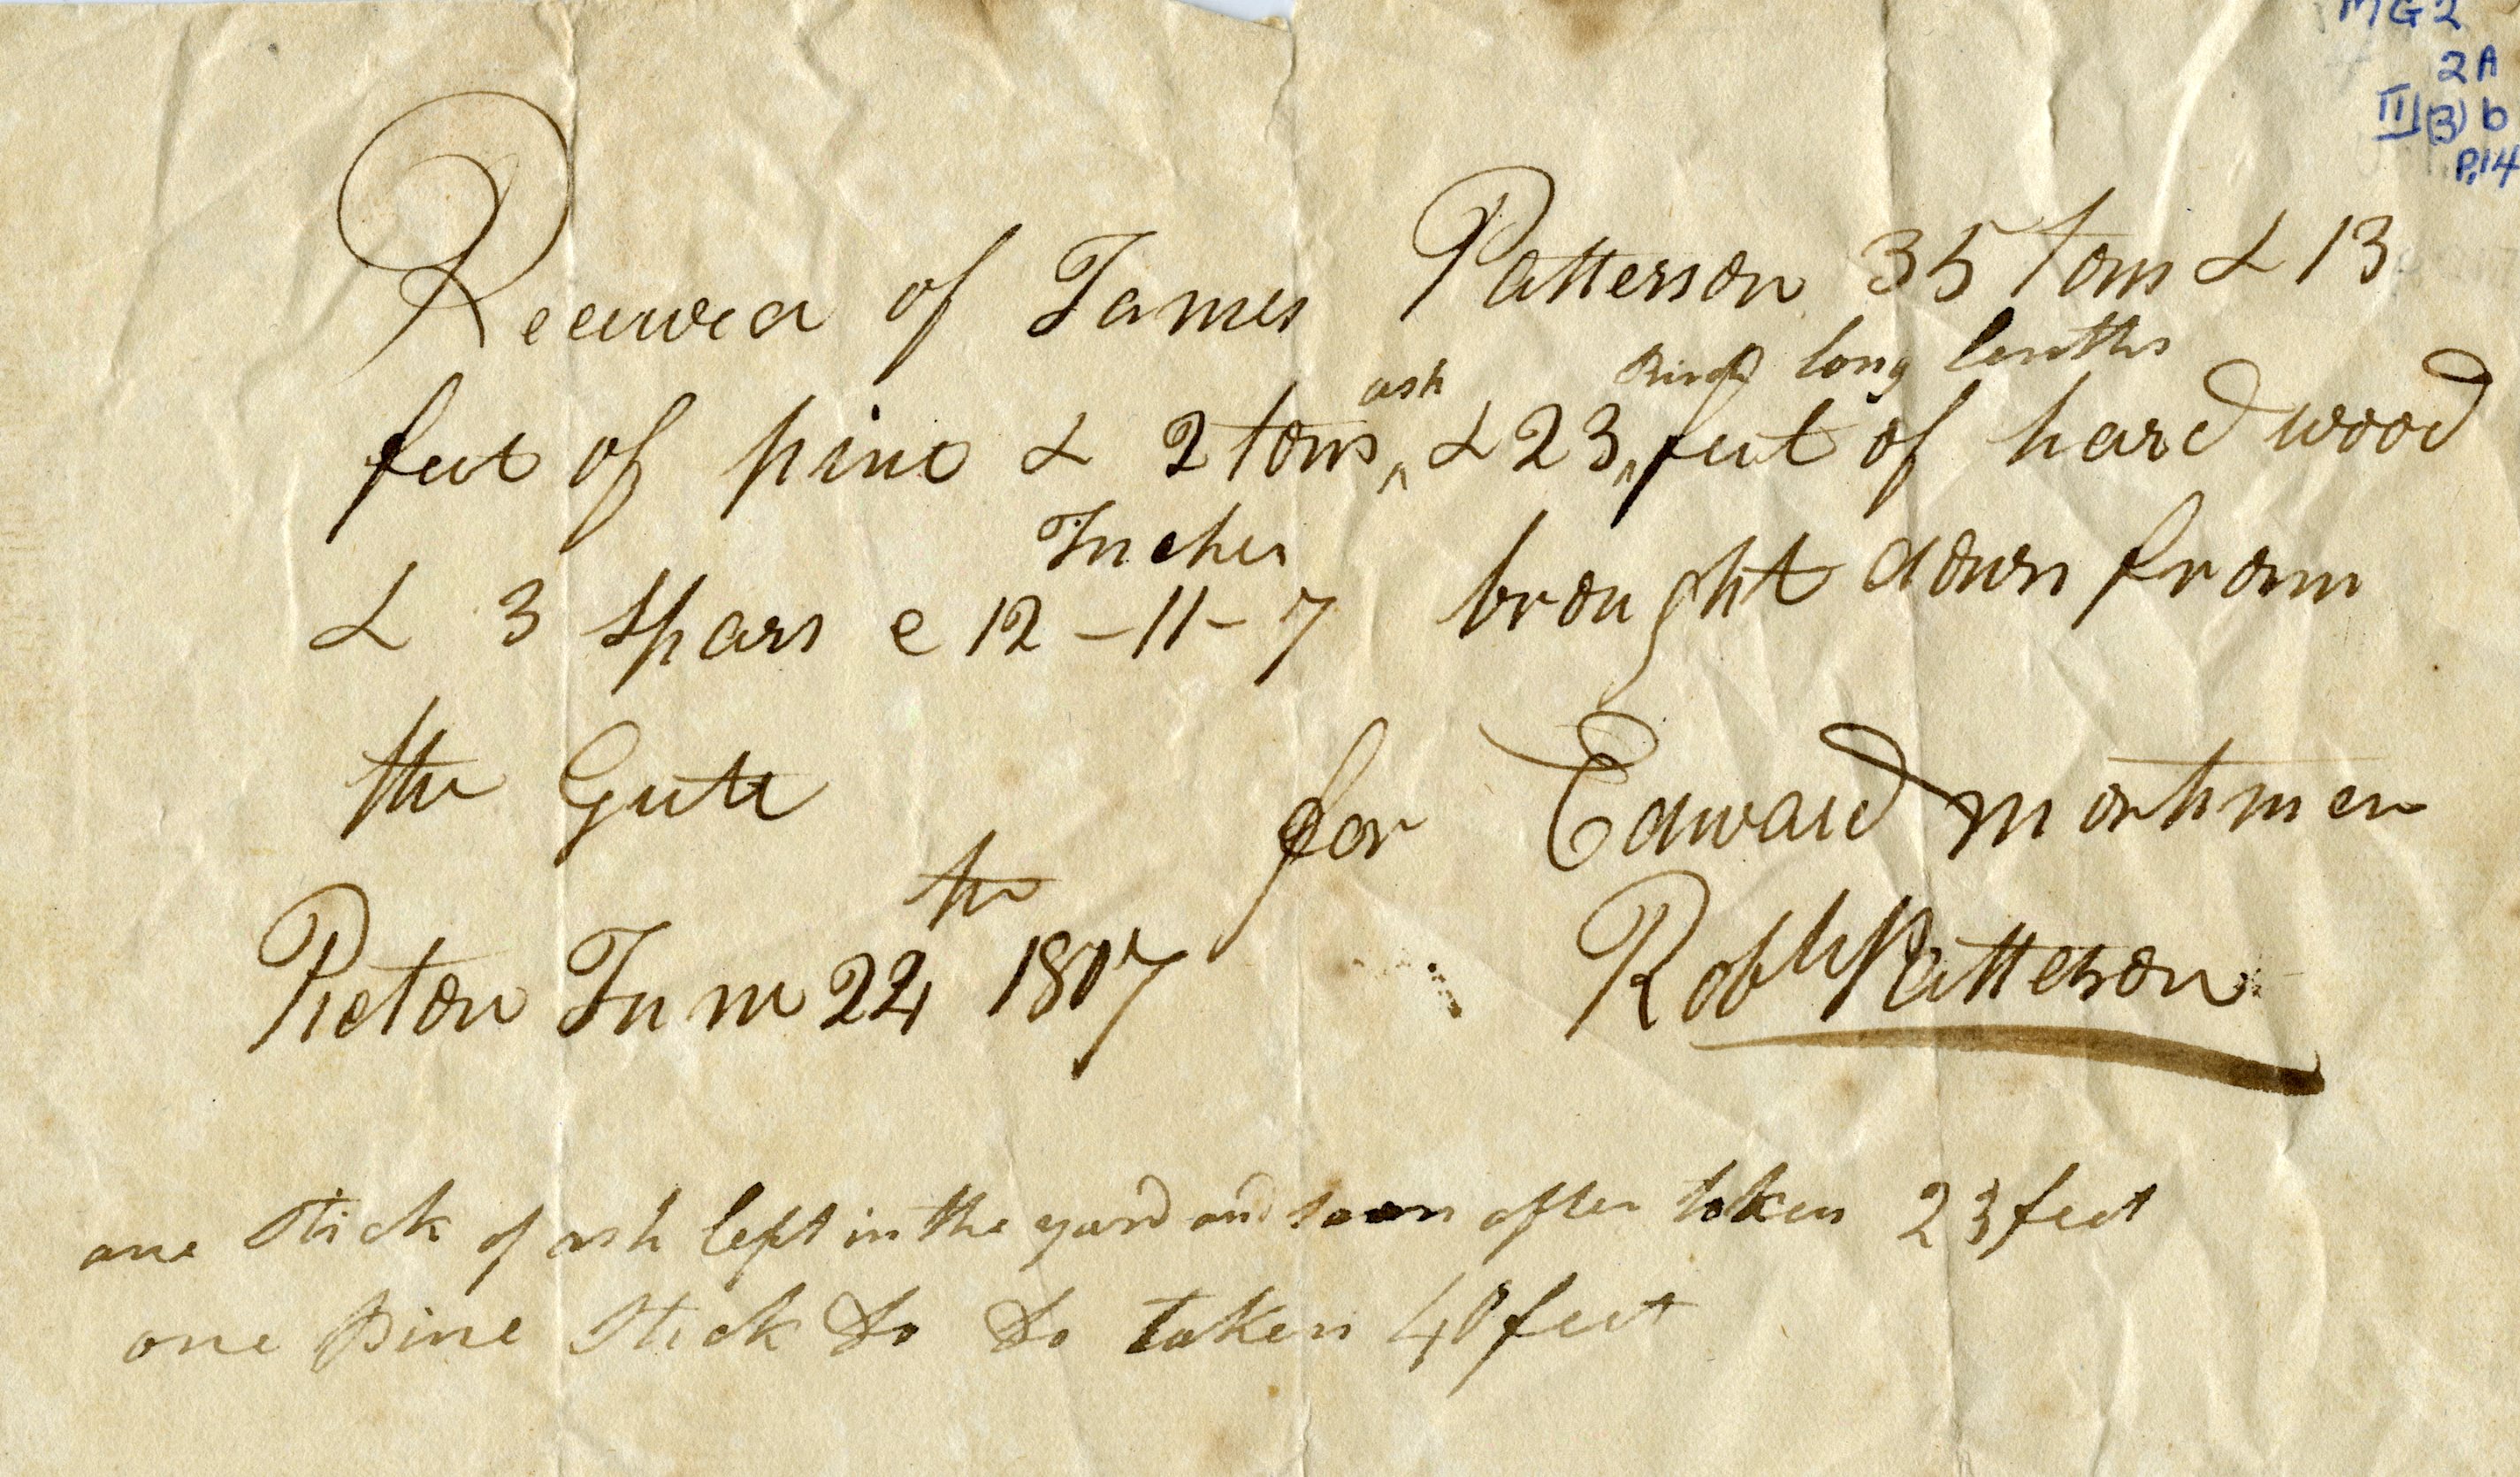 MG2
2A
III(3)b
P.14
Received of James Patterson 35 tons & 13
ash Birch long lenths
feet of pine & 2 tons ^ & 23 ^ feet of hard wood
Inches
& 3 Spars e 12 - 11 - 7 brought down from
the Gutt
for Edward mortimer
Picton June 24th 1807 Robt Patterson
one Stick of ash left in the yard and soon after taken 23 feet
one Pine Stick Do Do taken 40 feet